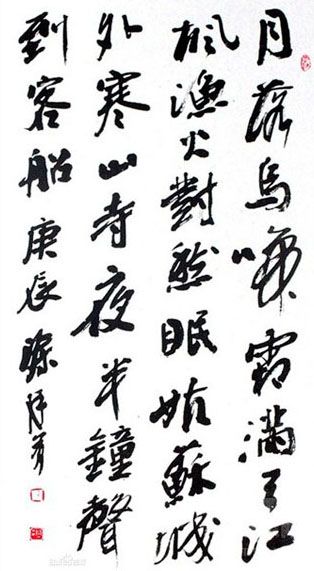 月落烏啼霜滿天江
楓漁火對愁眠姑蘇城
外寒山寺夜半鐘聲
到客船 庚辰